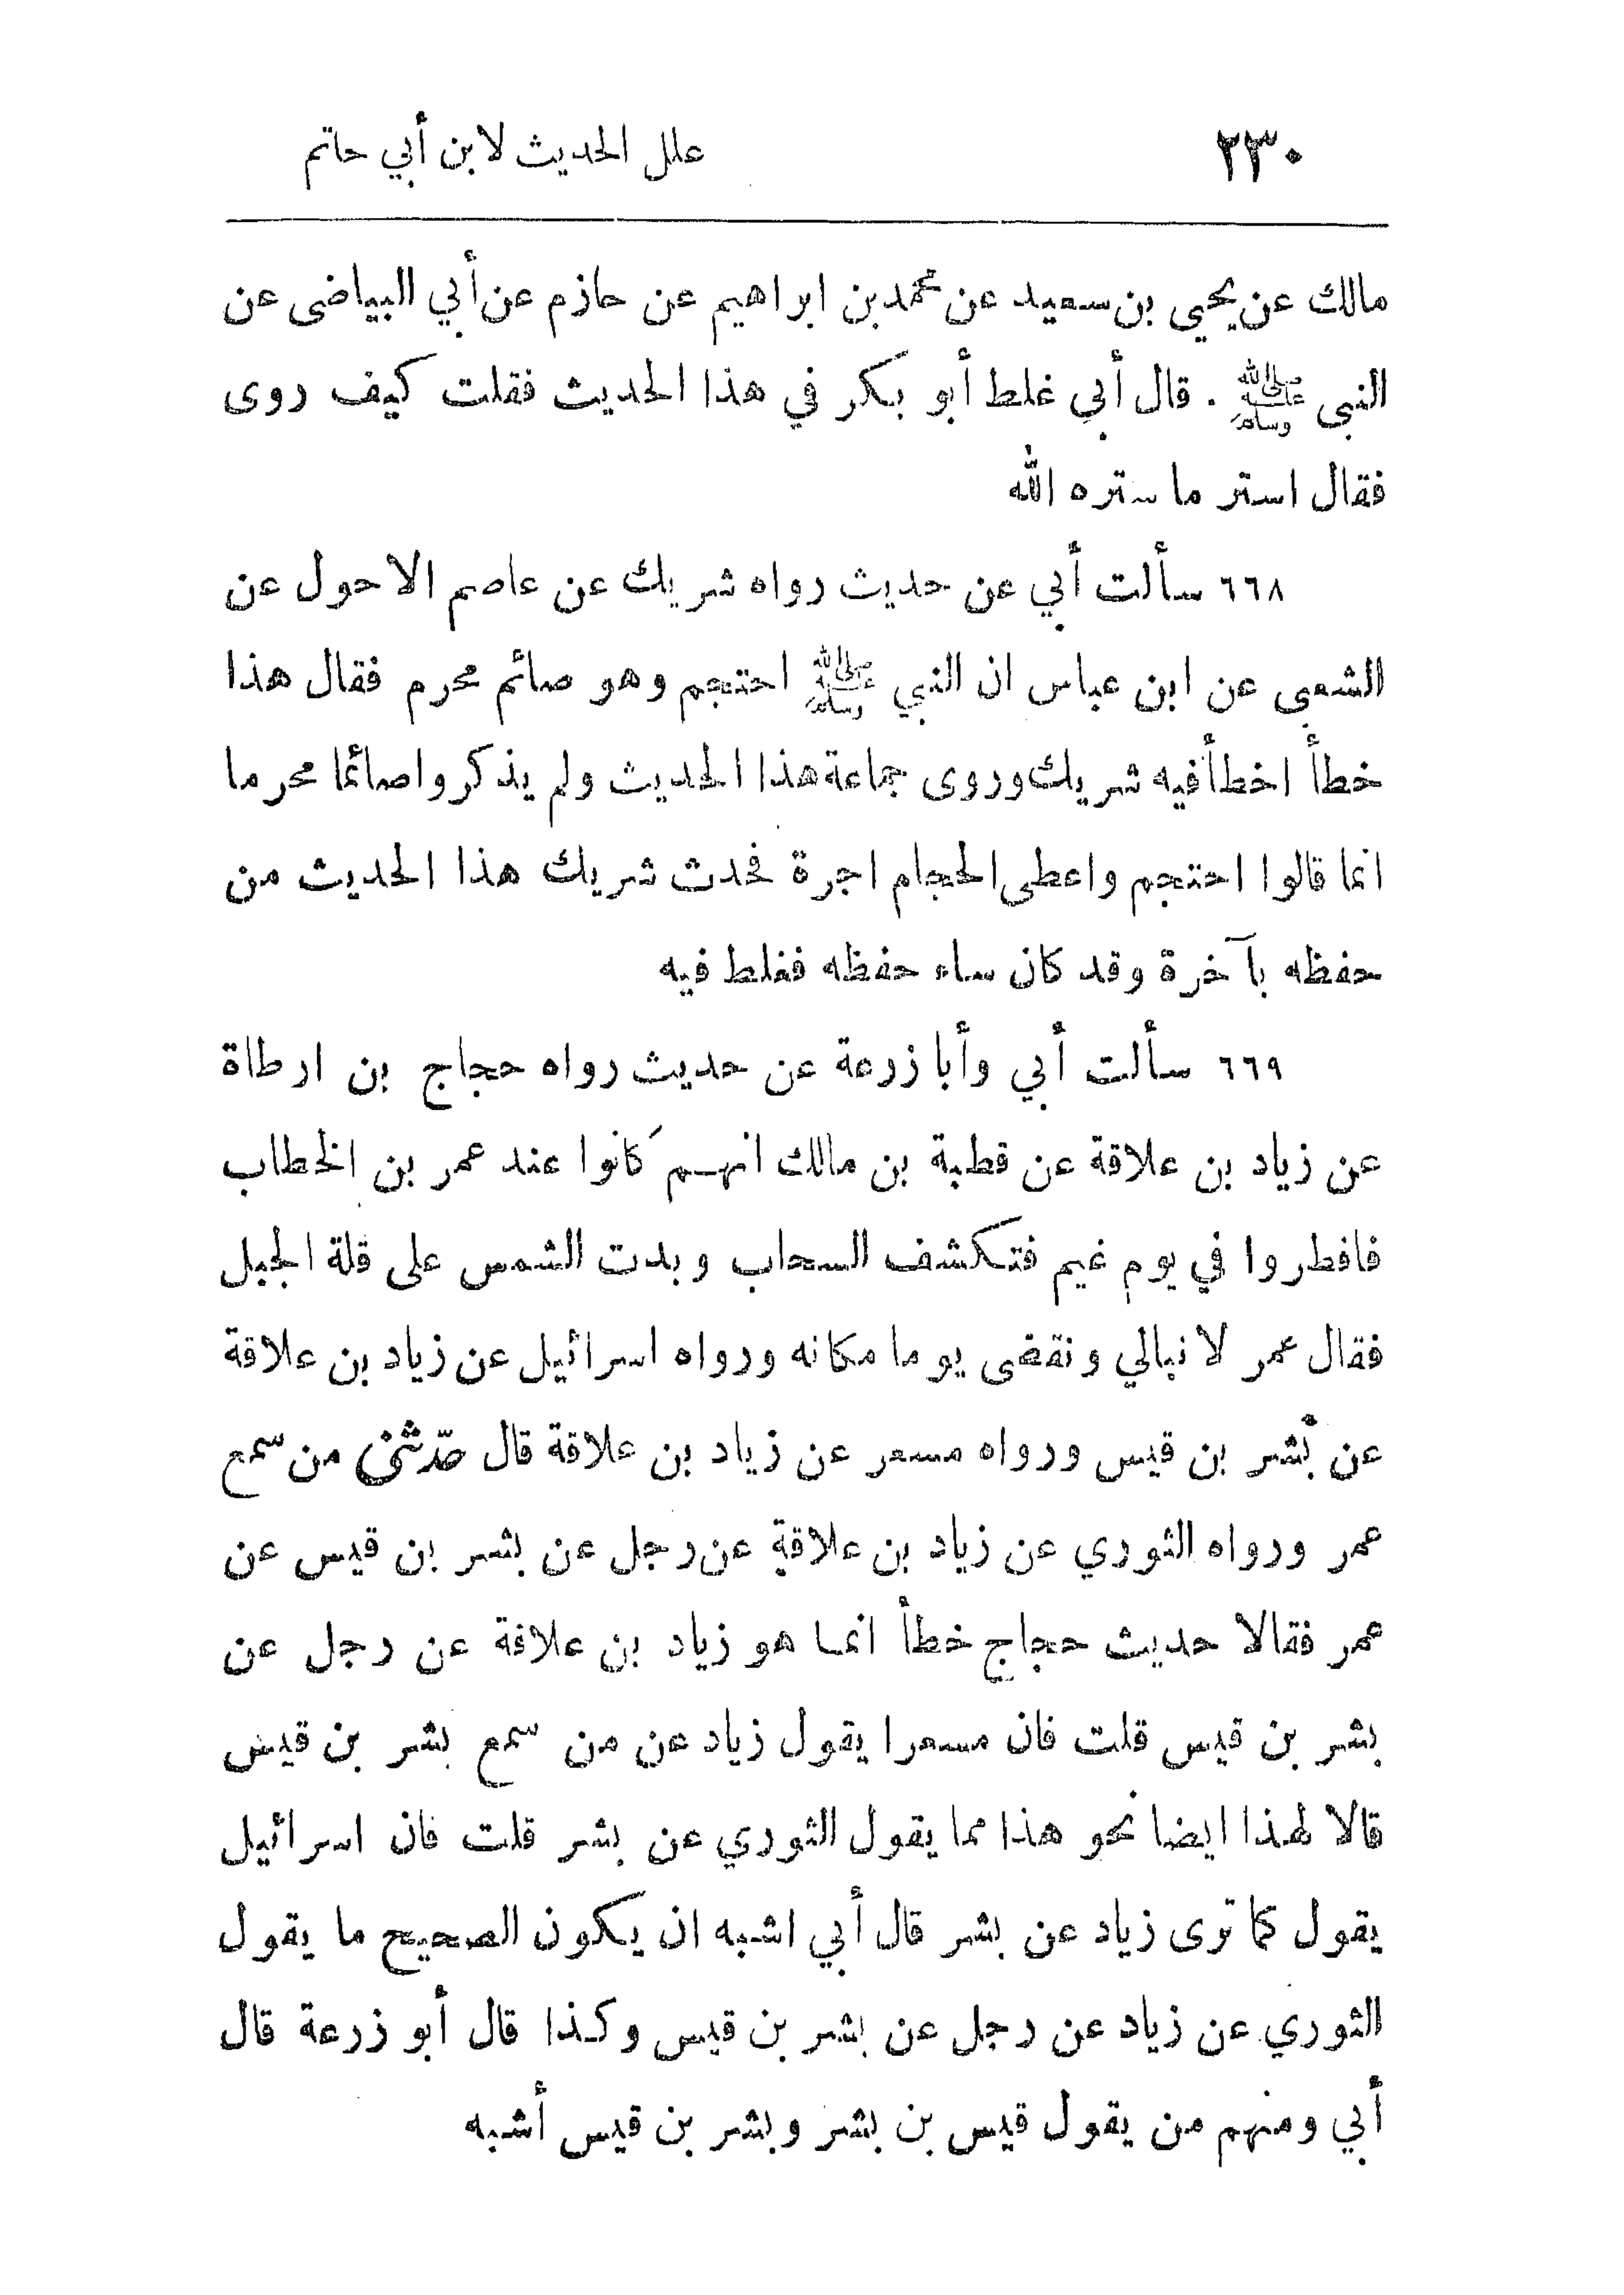 ٢٣٠ علل الحديث لابن أبي حاتم
مالك عن يحيى بن سعيد عن محمد بن ابراهيم عن حازم عن أبي البياضى عن
النبى ﷺ . قال أبي غلط أبو بكر في هذا الحديث فقلت كيف روى
فقال استر ما ستره الله
٦٦٨ سألت أبي عن حديث رواه شريك عن عاصم الاحول عن
الشعبى عن ابن عباس ان النبي ﷺ احتجم وهو صائم محرم فقال هذا
خطأ اخطأ فيه شريك وروى جماعة هذا الحديث ولم يذكروا صائما محرما
انما قالوا احتجم واعطى الحجام اجرة فحدث شريك هذا الحديث من
حفظه بآخرة وقد كان ساء حفظه فغلط فيه
٦٦٩ سألت أبي وأبا زرعة عن حديث رواه حجاج بن ارطاة
عن زياد بن علاقة عن قطبة بن مالك انهم كانوا عند عمر بن الخطاب
فافطروا في يوم غيم فتكشف السحاب وبدت الشمس على قلة الجبل
فقال عمر لا نبالي ونقضى يوما مكانه ورواه اسرائيل عن زياد بن علاقة
عن بشر بن قيس ورواه مسعر عن زياد بن علاقة قال حدّثنى من سمع
عمر ورواه الثوري عن زياد بن علاقة عن رجل عن بشر بن قيس عن
عمر فقالا حديث حجاج خطأ انما هو زياد بن علاقة عن رجل عن
بشر بن قيس قلت فان مسعرا يقول زياد عن من سمع بشر بن قيس
قالا لهذا ايضا نحو هذا مما يقول الثوري عن بشر قلت فان اسرائيل
يقول كما ترى زياد عن بشر قال أبي اشبه ان يكون الصحيح ما يقول
الثوري عن زياد عن رجل عن بشر بن قيس وكذا قال أبو زرعة قال
أبي ومنهم من يقول قيس بن بشر وبشر بن قيس أشبه